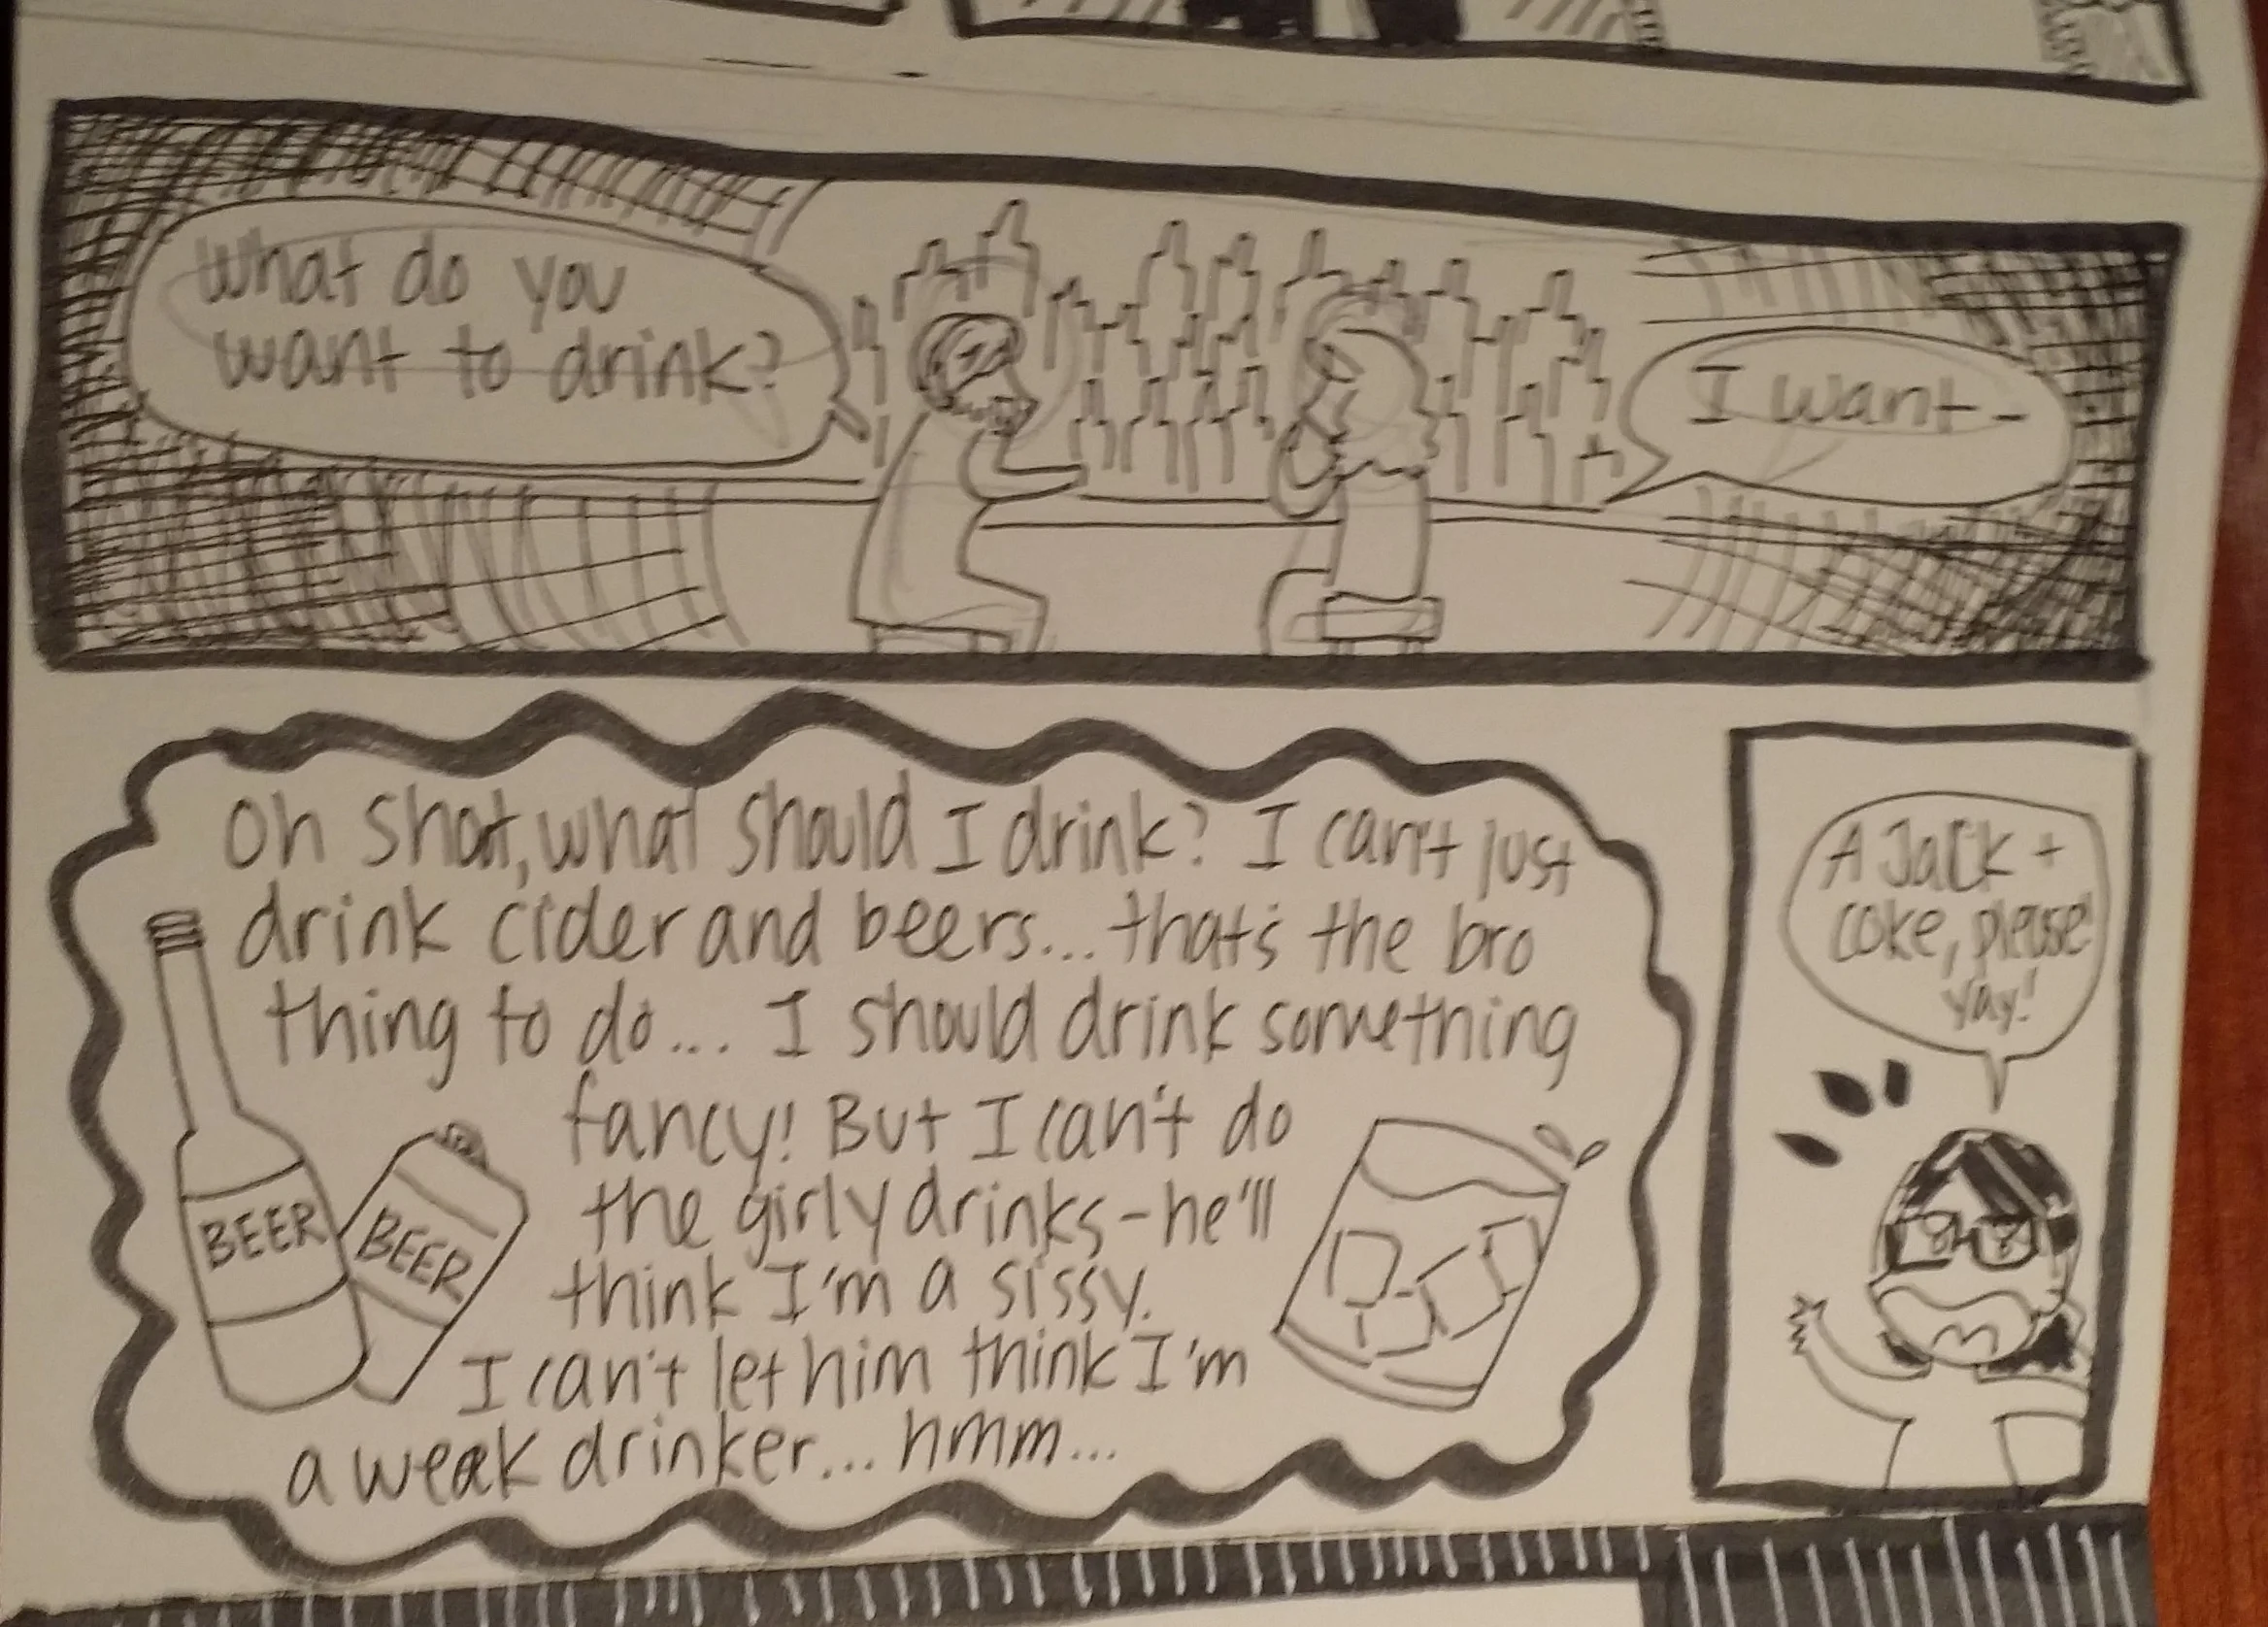 What do you
want to drink?
I want-
Oh shot, what should I drink? I can't just
drink cider and beers... that's the bro
thing to do... I should drink something
fancy! But I can't do
the girly drinks - he'll
think I'm a sissy.
I can't let him think I'm
a weak drinker... hmm...
BEER
BEER
A Jack +
coke, please!
yay!